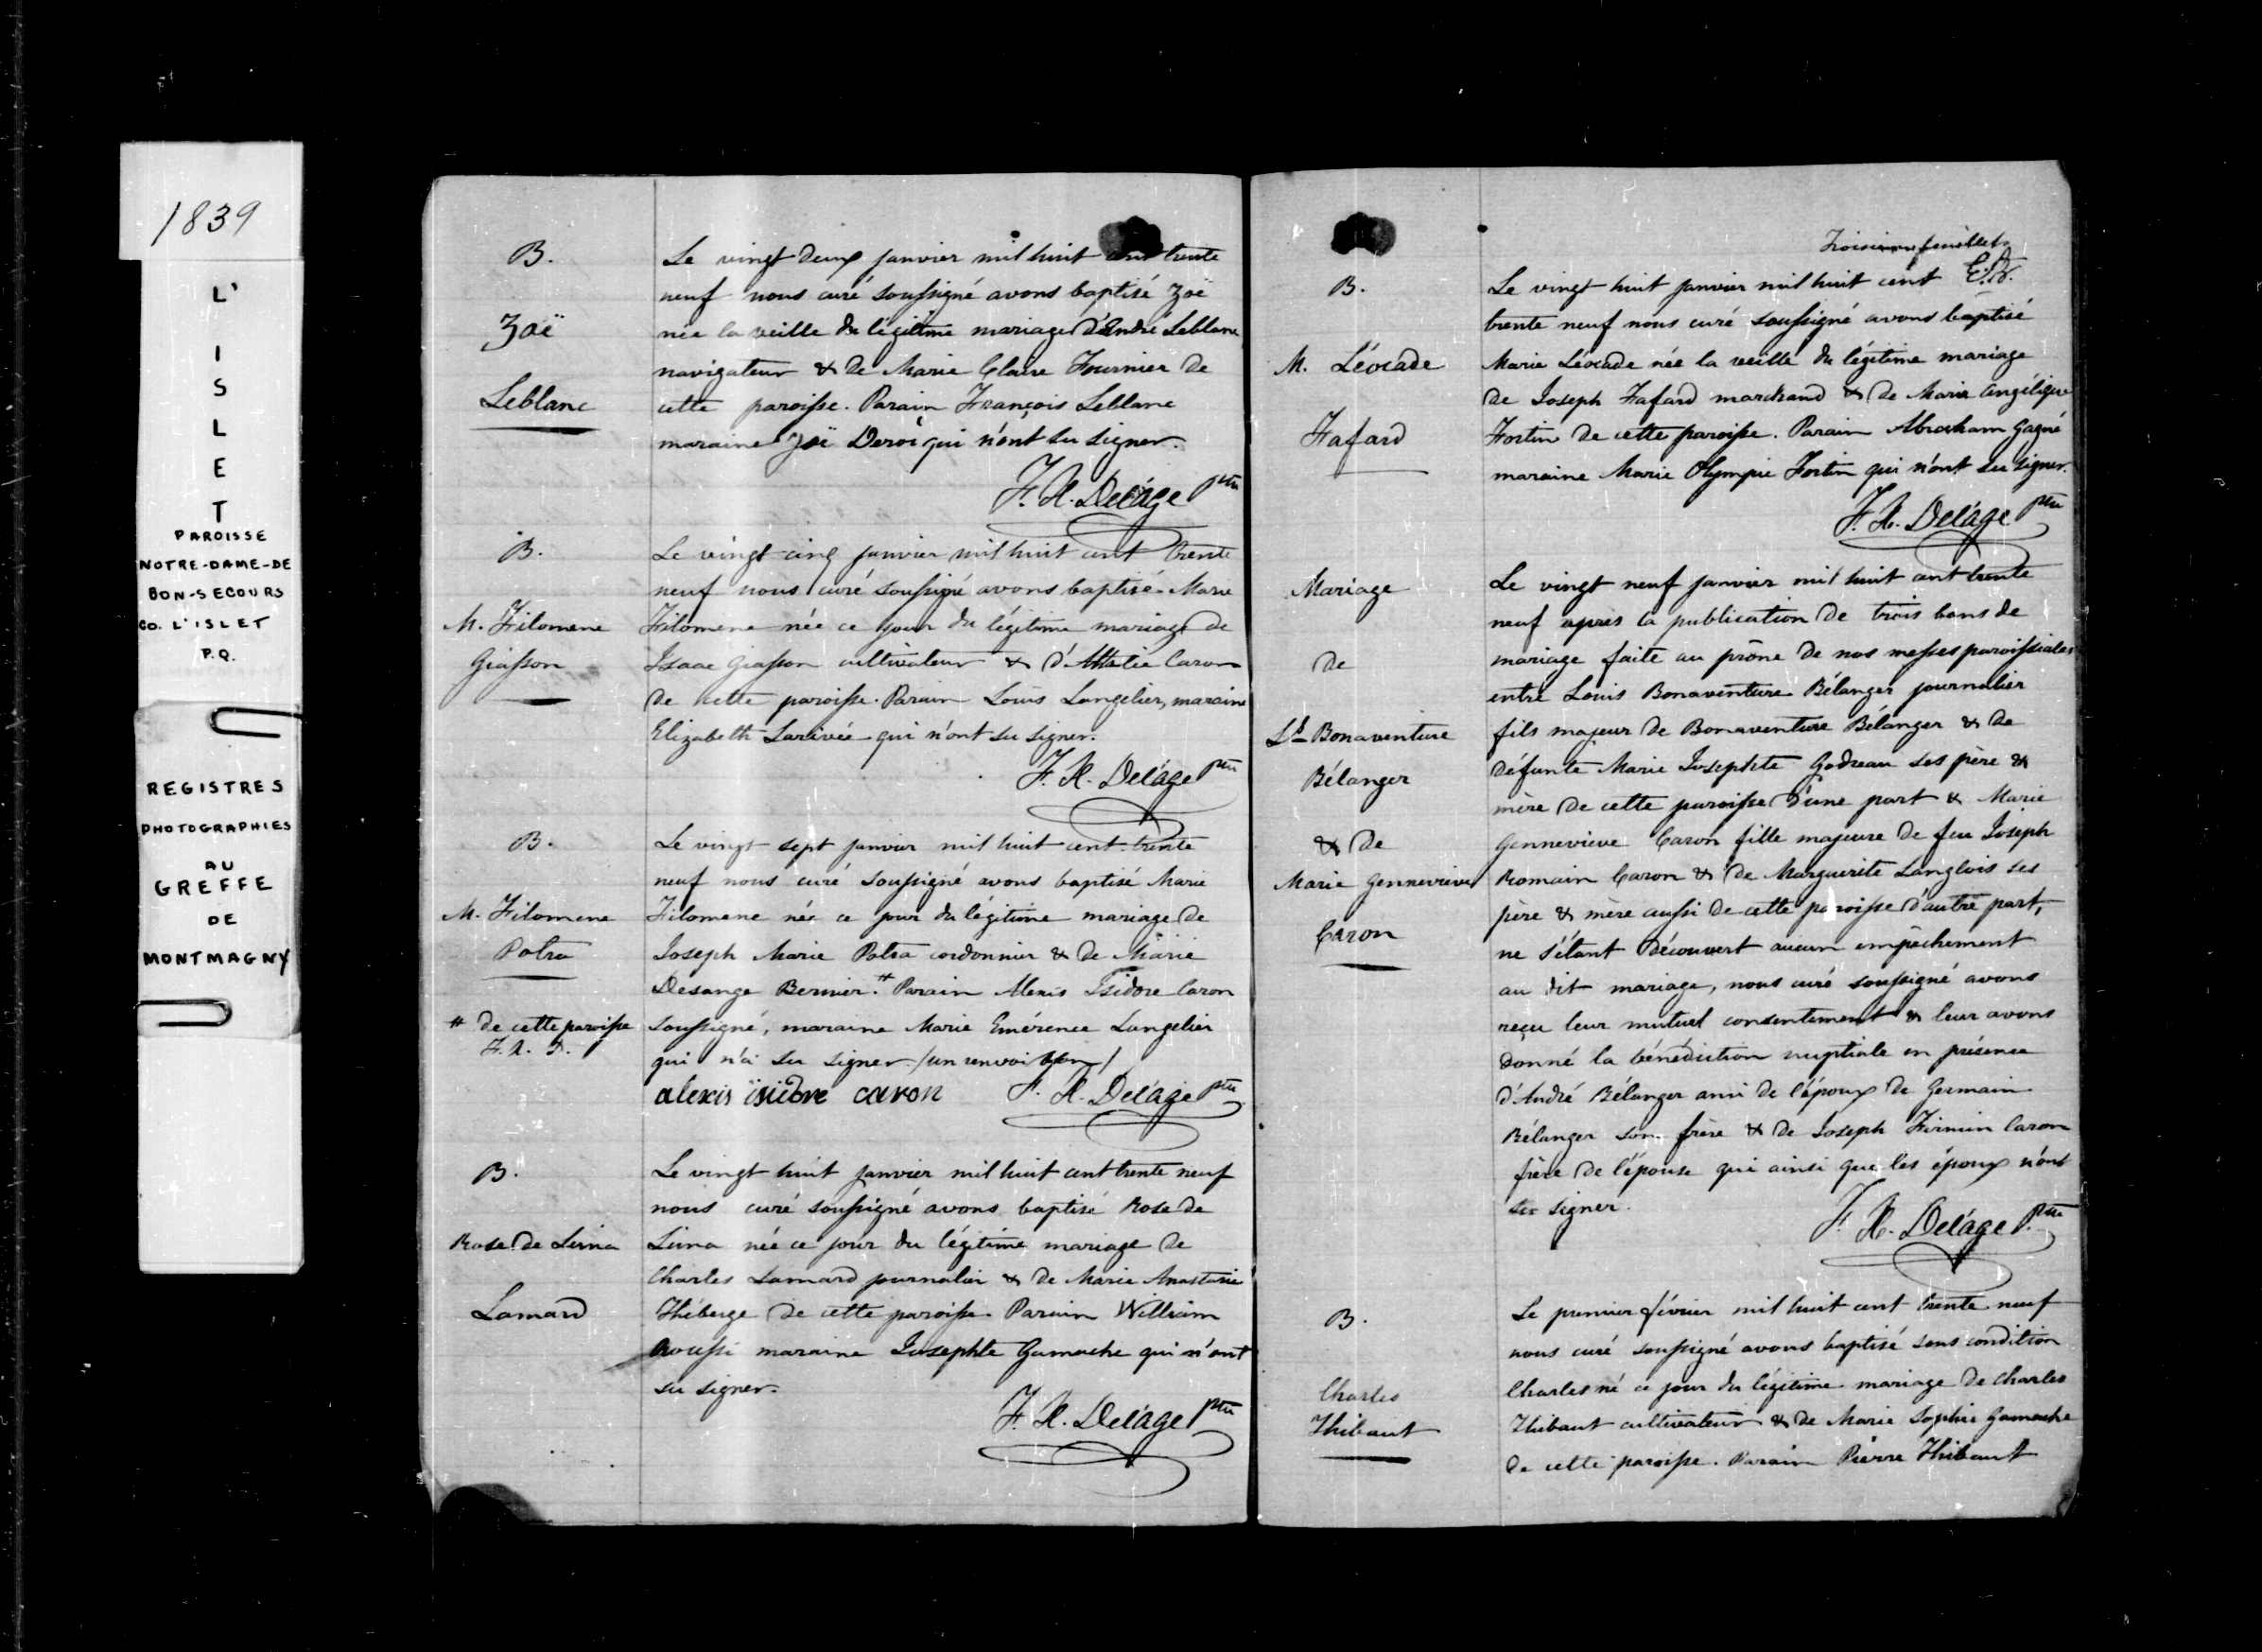 1839
L'
I
S
L
E
T
PAROISSE
NOTRE-DAME-DE
BON-SECOURS
CO. L'ISLET
P.Q.
REGISTRES
PHOTOGRAPHIES
AU
GREFFE
DE
MONTMAGNY
B.
Zoë
Leblanc
Le vingt deux janvier mil huit cent trente
neuf nous curé soussigné avons baptisé Zoë
née la veille du légitime mariage d'André Leblanc
navigateur & de Marie Claire Fournier de
cette paroisse. Parain François Leblanc
maraine Zoë Deroi qui n'ont su signer.
F. X. Delâge Ptre
B.
M. Filomene
Giasson
Le vingt cinq janvier mil huit cent trente
neuf nous curé soussigné avons baptisé Marie
Filomene née ce jour du légitime mariage de
Isaac Giasson cultivateur & d'Attalie Caron
de cette paroisse. Parain Louis Langelier, maraine
Elizabeth Larivée qui n'ont su signer.
F. X. Delâge Ptre
B.
M. Filomene
Potra
# de cette paroisse
F. X. D.
Le vingt sept janvier mil huit cent trente
neuf nous curé soussigné avons baptisé Marie
Filomene née ce jour du légitime mariage de
Joseph Marie Potra cordonnier & de Marie
Desange Bernier. # Parain Alexis Isidore Caron
soussigné, maraine Marie Emérence Langelier
qui n'a su signer / un renvoi bon /
alexis isidore caron F. X. Delâge Ptre
B.
Rose de Lima
Lamard
Le vingt huit janvier mil huit cent trente neuf
nous curé soussigné avons baptisé Rose de
Lima née ce jour du légitime mariage de
Charles Lamard journalier & de Marie Anastasie
Théberge de cette paroisse Parain William
Roussi maraine Josephte Gamache qui n'ont
su signer.
F. X. Delâge Ptre
Troisieme feuillet
B.
M. Léocade
Fafard
Le vingt huit janvier mil huit cent
trente neuf nous curé soussigné avons baptisé
Marie Léocade née la veille du légitime mariage
de Joseph Fafard marchand & de Marie Angélique
Fortin de cette paroisse. Parain Abraham Gagné
maraine Marie Olympie Fortin qui n'ont su signer.
F. X. Delâge ptre
Mariage
de
Ls Bonaventure
Bélanger
& de
Marie Gennevieve
Caron
Le vingt neuf janvier mil huit cent trente
neuf après la publication de trois bans de
mariage faite au prône de nos messes paroissiales
entre Louis Bonaventure Bélanger journalier
fils majeur de Bonaventure Bélanger & de
défunte Marie Josephte Godreau ses père &
mère de cette paroisse d'une part & Marie
Gennevieve Caron fille majeure de feu Joseph
Romain Caron & de Marguerite Langlois ses
père & mère aussi de cette paroisse d'autre part,
ne s'étant découvert aucun empêchement
au dit mariage, nous curé soussigné avons
reçu leur mutuel consentement & leur avons
donné la bénédiction nuptiale en présence
d'André Bélanger ami de l'époux de Germain
Bélanger son frère & de Joseph Firmin Caron
frère de l'épouse qui ainsi que les époux n'ont
su signer.
F. X. Delâge Ptre
B.
Charles
Thibaut
Le premier février mil huit cent trente neuf
nous curé soussigné avons baptisé sous condition
Charles né ce jour du légitime mariage de Charles
Thibaut cultivateur & de Marie Sophie Gamache
de cette paroisse. Parain Pierre Thibaut